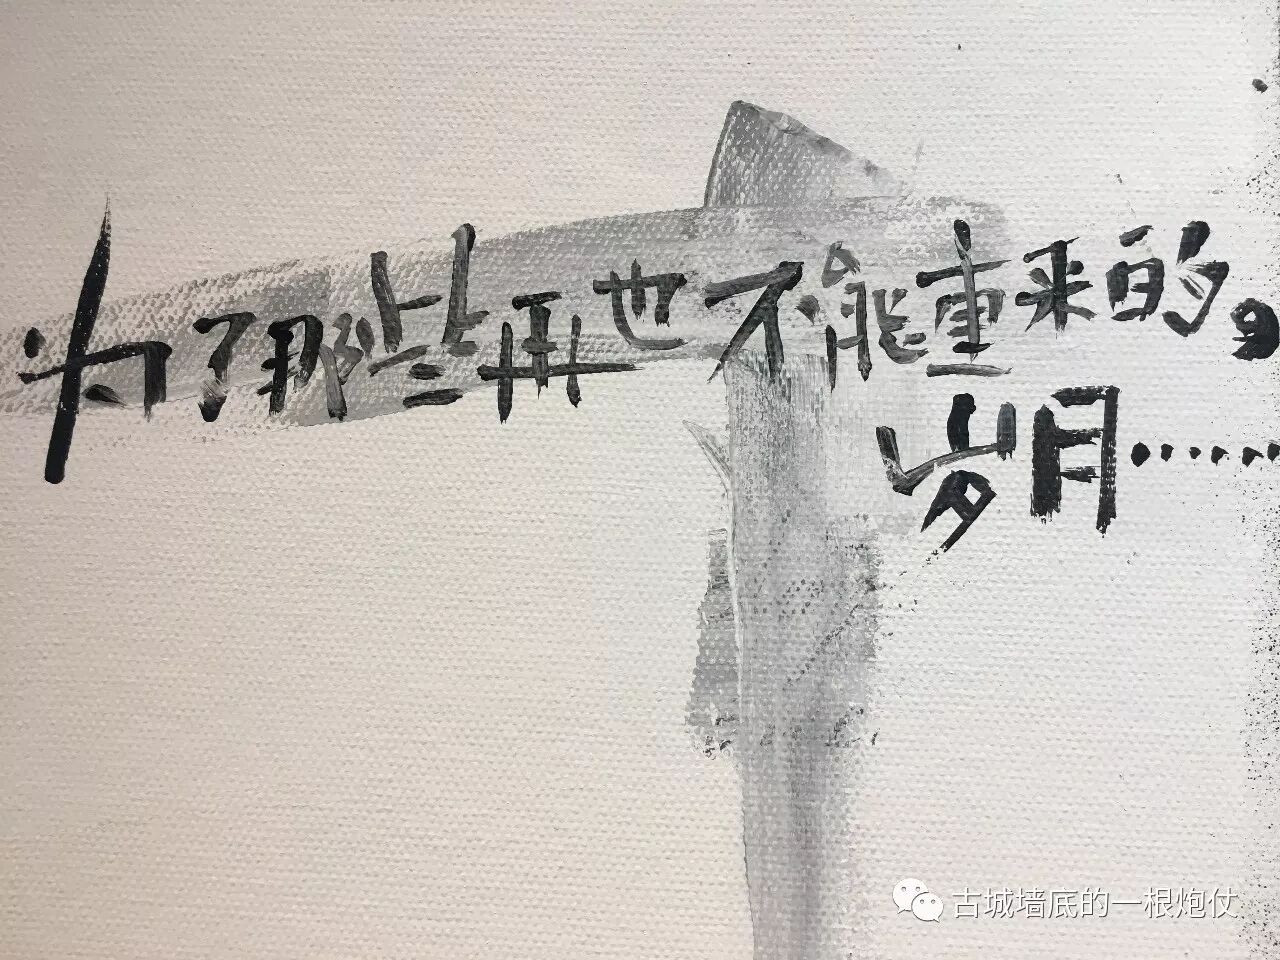 为了那些再也不能重来的。
岁月……
古城墙底的一根炮仗